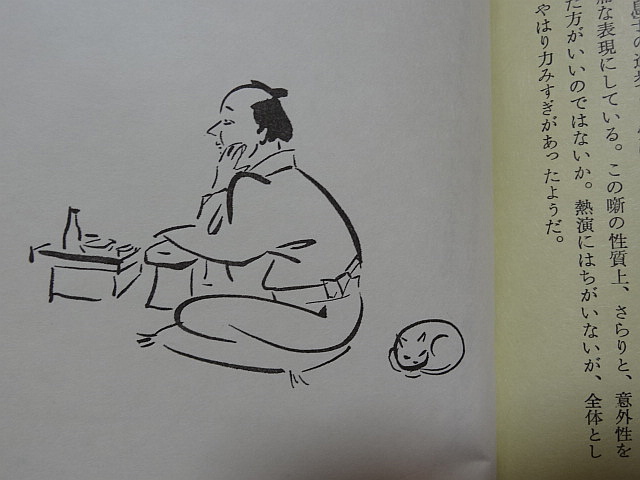 な表現にしている。この噺の性質上、さらりと、意外性を
た方がいいのではないか。熱演にはちがいないが、全体とし
やはり力みすぎがあったようだ。